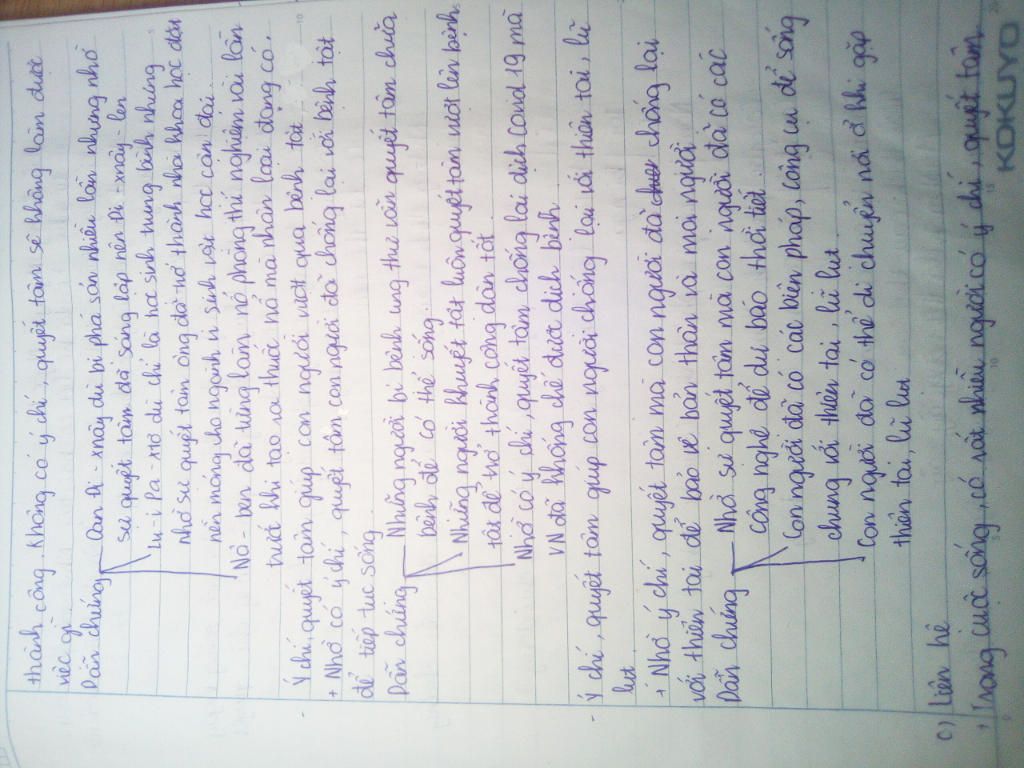 thành công. Không có ý chí, quyết tâm sẽ không làm được
việc gì
Dẫn chứng Oan Đi-xnây dù bị phá sản nhiều lần nhưng nhờ
sự quyết tâm đã sáng lập nên Đi-xnây-len
Lu-i Pa-xtơ dù chỉ là học sinh trung bình nhưng
Nhờ sự quyết tâm ông đã trở thành nhà khoa học đặt
nền móng cho ngành vi sinh vật học cận đại
Nô-ben đã từng làm nổ phòng thí nghiệm vài lần
trước khi tạo ra thuốc nổ mà nhân loại đang có.
Ý chí, quyết tâm giúp con người vượt qua bệnh tật
+ Nhờ có ý chí, quyết tâm con người đã chống lại với bệnh tật
để tiếp tục sống
Dẫn chứng Những người bị bệnh ung thư vẫn quyết tâm chữa
bệnh để có thể sống.
Những người khuyết tật luôn quyết tâm vượt lên bệnh
tật để trở thành công dân tốt
Nhờ có ý chí, quyết tâm chống lại dịch Covid 19 mà
VN đã khống chế được dịch bệnh
- Ý chí, quyết tâm giúp con người chống lại với thiên tai, lũ
lụt
+ Nhờ ý chí, quyết tâm mà con người đã chống lại
với thiên tai để bảo vệ bản thân và mọi người
Dẫn chứng Nhờ sự quyết tâm mà con người đã có các
công nghệ để dự báo thời tiết
Con người đã có các biện pháp, công cụ để sống
chung với thiên tai, lũ lụt
Con người đã có thể di chuyển nơi ở khi gặp
thiên tai, lũ lụt
c) Liên hệ
+ Trong cuộc sống, có rất nhiều người có ý chí, quyết tâm
KOKUYO